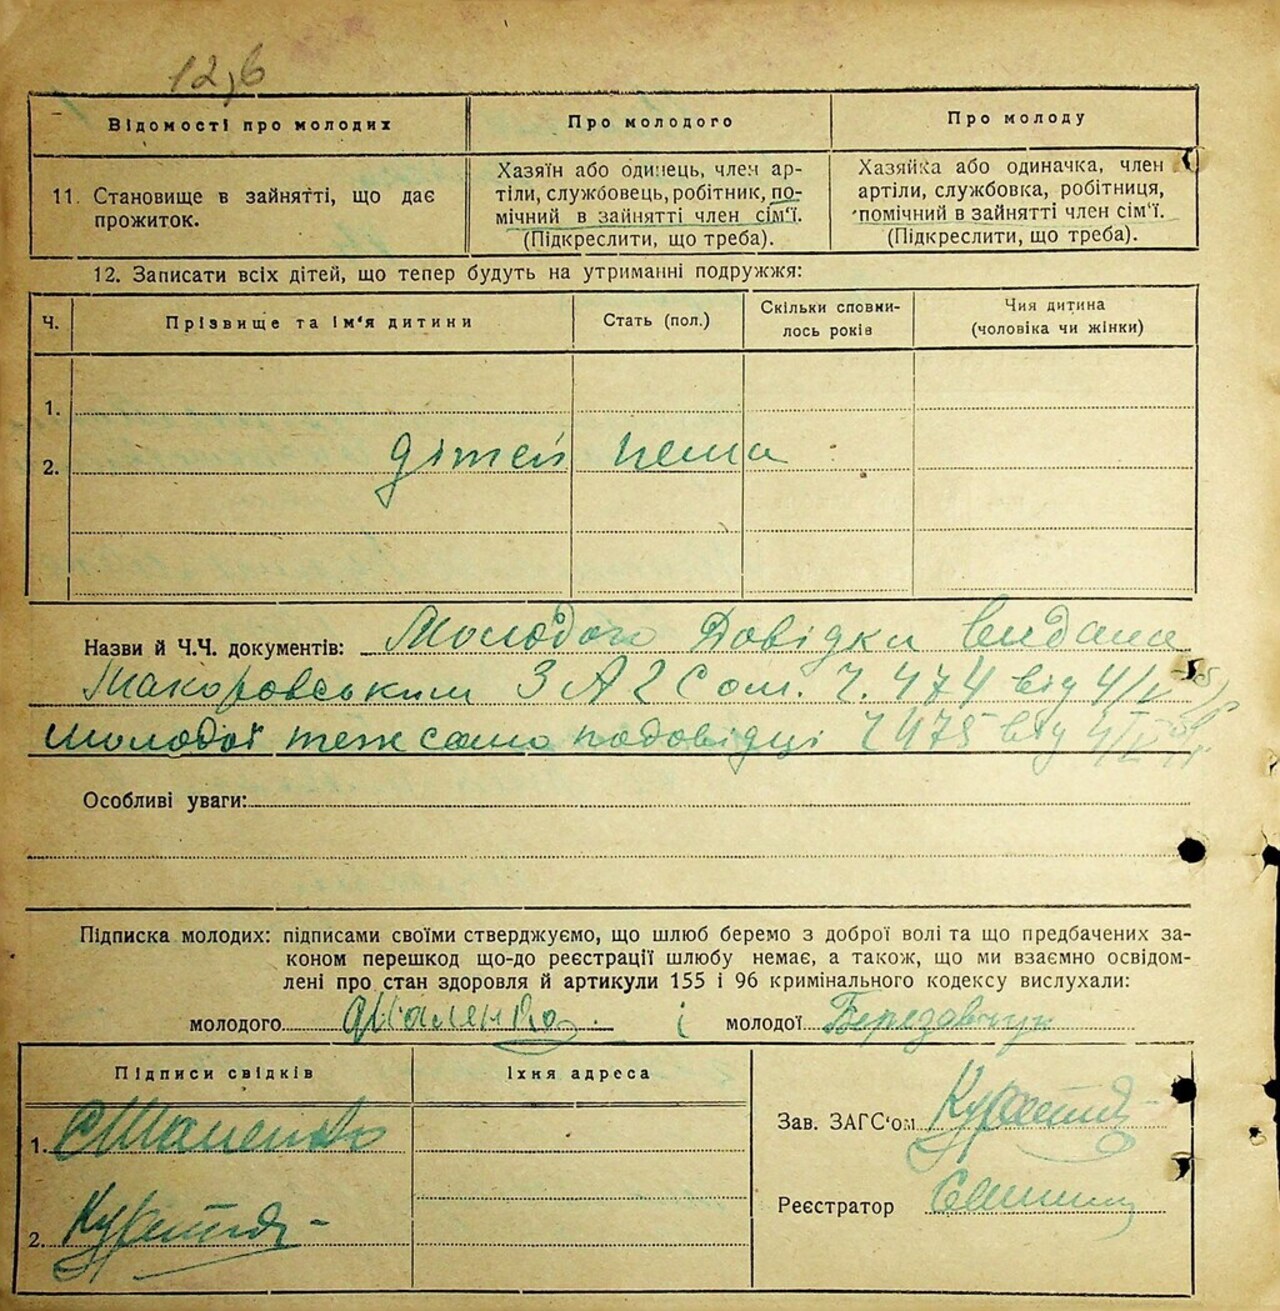 12,6
Відомості про молодих
Про молодого
Про молоду
11. Становище в зайнятті, що дає
прожиток.
Хазяїн або одинець, член ар-
тіли, службовець, робітник, по-
мічний в зайнятті член сім'ї.
(Підкреслити, що треба).
Хазяйка або одиначка, член
артіли, службовка, робітниця,
помічний в зайнятті член сім'ї.
(Підкреслити, що треба).
12. Записати всіх дітей, що тепер будуть на утриманні подружжя:
Ч.
Прізвище та ім'я дитини
Стать (пол.)
Скільки сповни-
лось років
Чия дитина
(чоловіка чи жінки)
1.
2. дітей нема
Назви й Ч.Ч. документів: Молодого Довідка видана
Макоровським ЗАГСом. Ч. 474 від 4/V
молодої теж само подовідці Ч 475 від 4/V
Особливі уваги:
Підписка молодих: підписами своїми стверджуємо, що шлюб беремо з доброї волі та що предбачених за-
коном перешкод що-до реєстрації шлюбу немає, а також, що ми взаємно освідом-
лені про стан здоровля й артикули 155 і 96 кримінального кодексу вислухали:
молодого і молодої Березавчук
Підписи свідків
Їхня адреса
1.
2.
Зав. ЗАГС'ом
Реєстратор